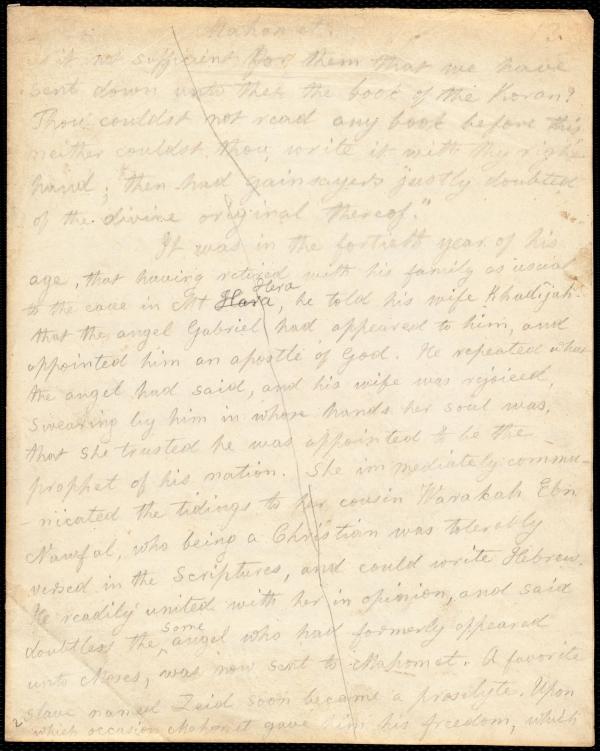 Mahomet.
is it not sufficient for them that we have
sent down unto thee the book of the Koran?
Thou couldst not read any book before this
neither couldst thou write it with thy right
hand; then had gainsayers justly doubted
of the divine original thereof."
It was in the fortieth year of his
age, that having retired with his family as usual
Hera
to the cave in Mt Hara, he told his wife Khadijah
that the angel Gabriel had appeared to him, and
appointed him an apostle of God. He repeated what
the angel had said, and his wife was rejoiced,
swearing by him in whose hands her soul was,
that she trusted he was appointed to be the
prophet of his nation. She immediately commu-
-nicated the tidings to her cousin Warakah Ebn
Nawfal, who being a Christian was tolerably
versed in the Scriptures, and could write Hebrew.
He readily united with her in opinion, and said
some
doubtless the angel who had formerly appeared
unto Moses, was now sent to Mahomet. A favorite
slave named Zeid soon became a proselyte. Upon
which occasion Mahomet gave him his freedom, which
2